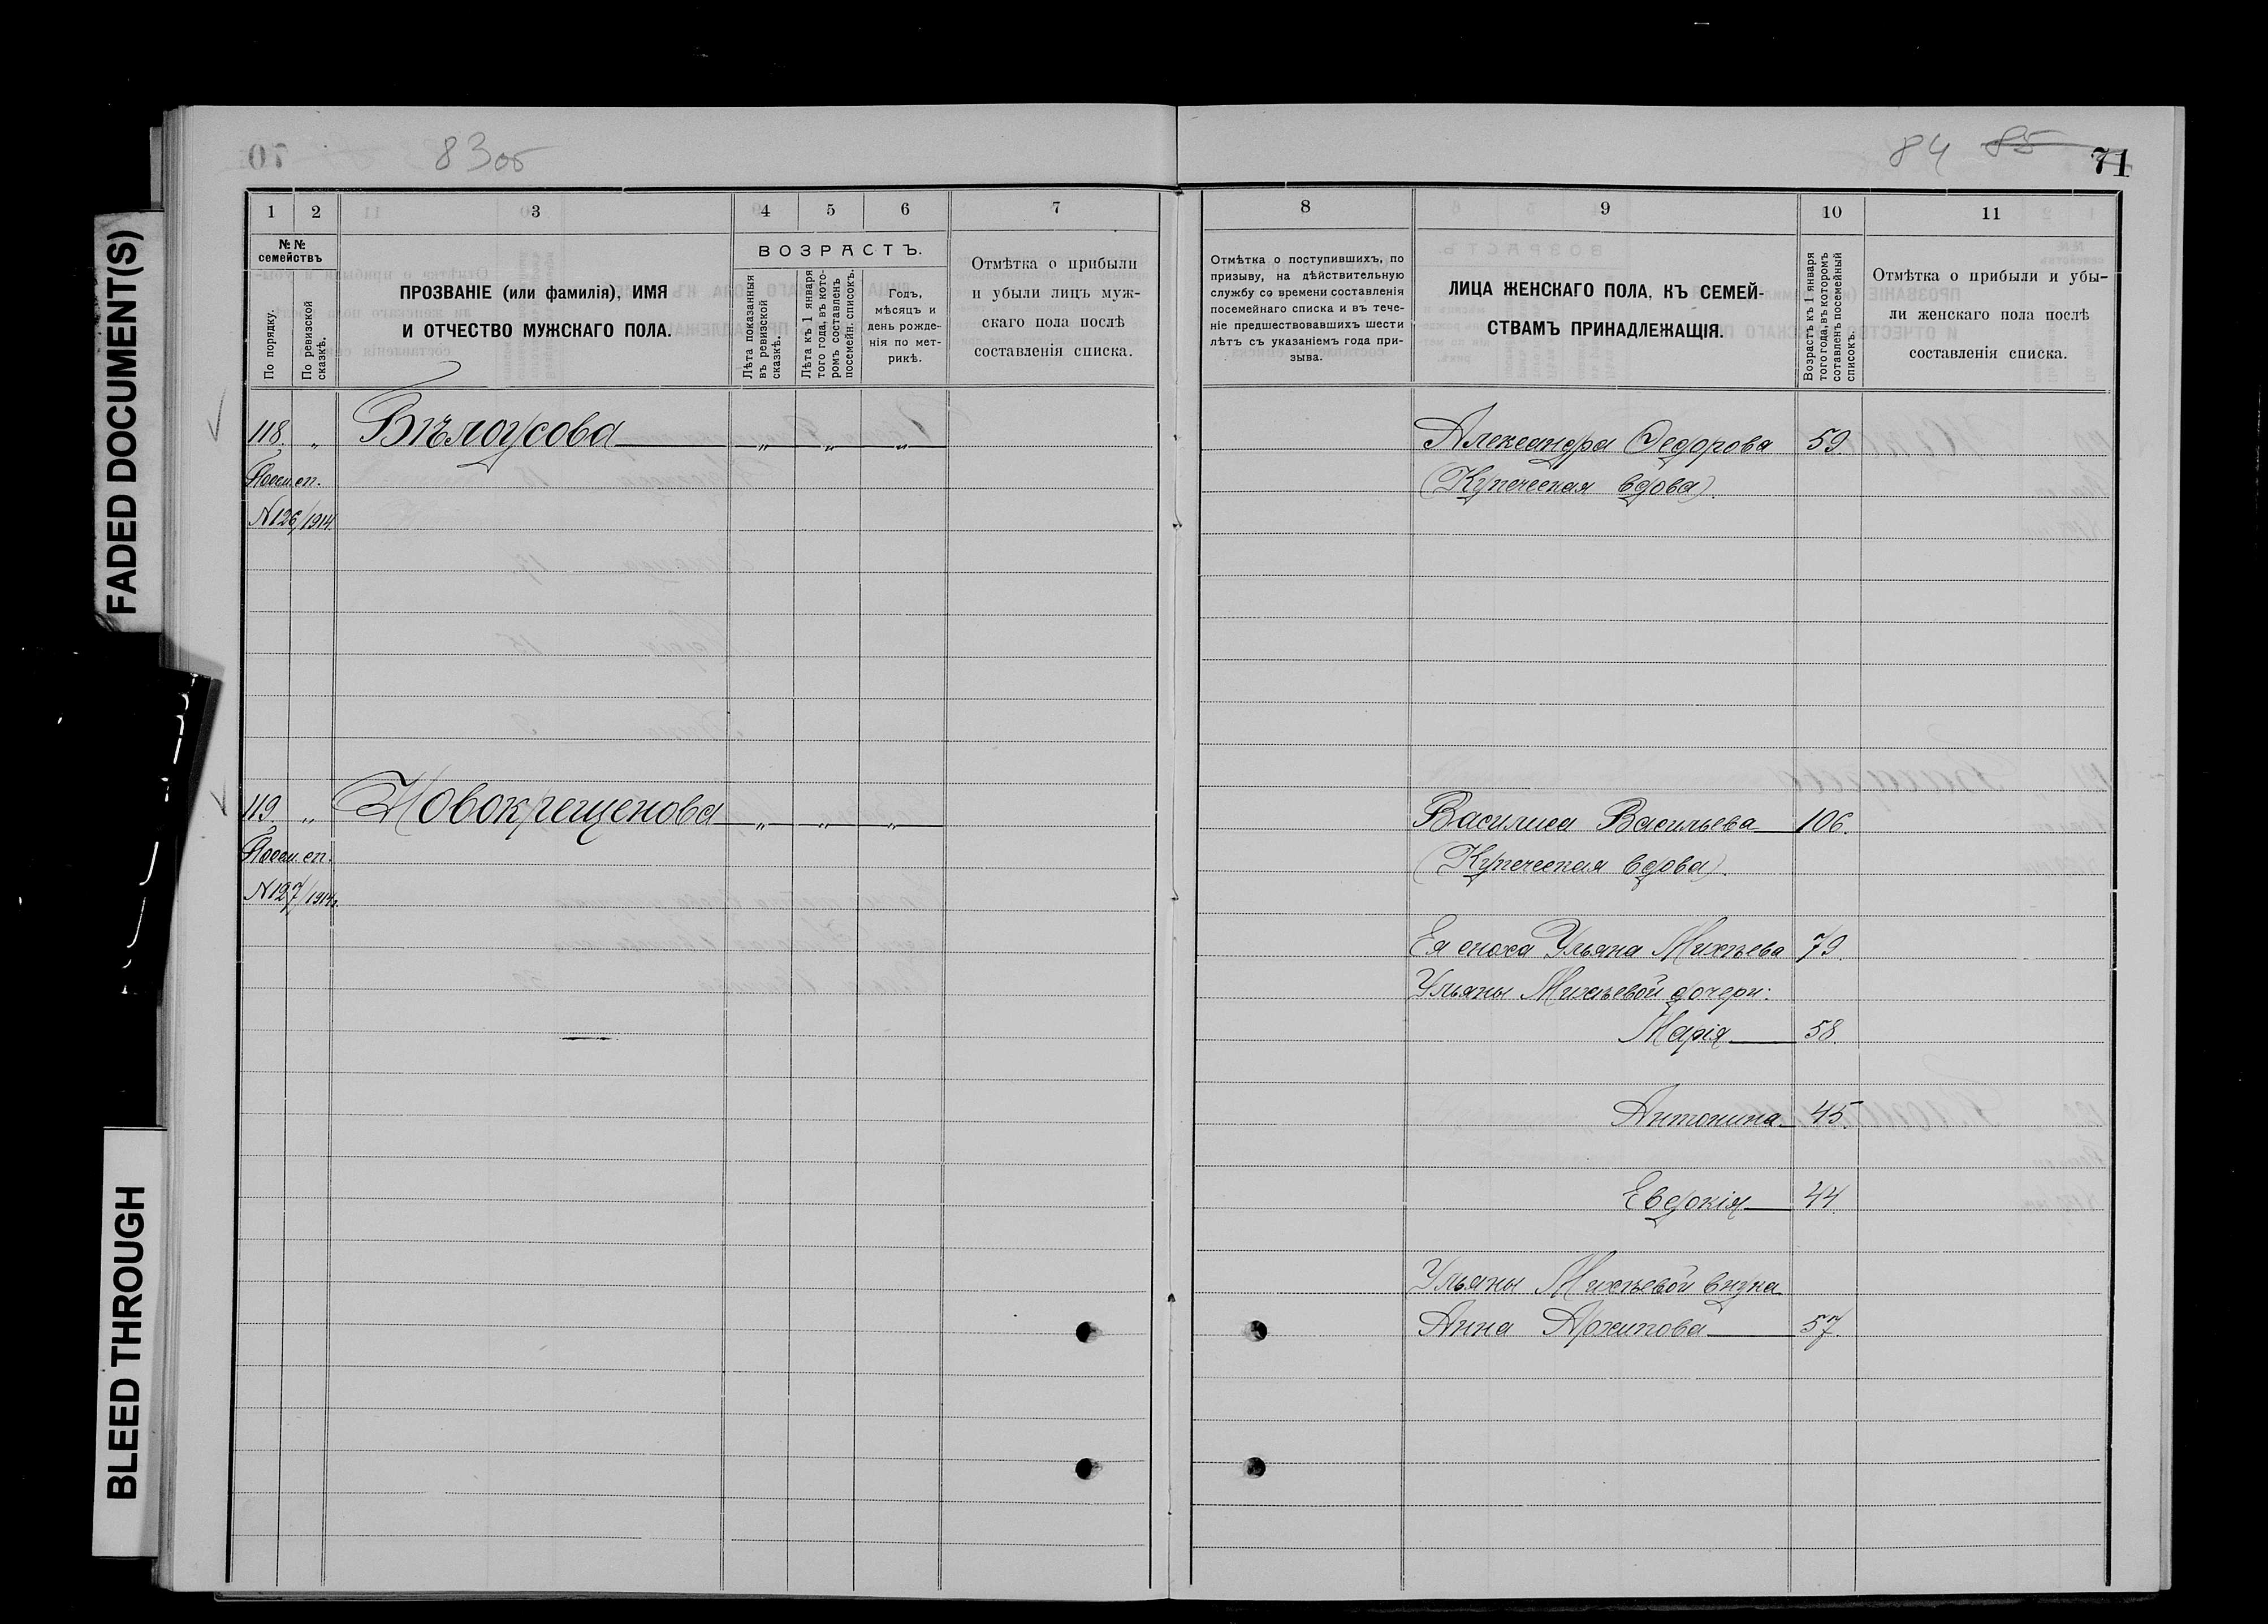 FADED DOCUMENT(S)
BLEED THROUGH
83об
84 85
71
70
1 2 3 4 5 6 7
№ № семействъ
По порядку.
По ревизской сказкѣ.
ПРОЗВАНІЕ (или фамилія), ИМЯ
И ОТЧЕСТВО МУЖСКАГО ПОЛА.
ВОЗРАСТЪ.
Лѣта показанныя въ ревизской сказкѣ.
Лѣта къ 1 января того года, въ которомъ составленъ посемейн. списокъ.
Годъ,
мѣсяцъ и
день рожде-
нія по мет-
рикѣ.
Отмѣтка о прибыли
и убыли лицъ муж-
скаго пола послѣ
составленія списка.
8 9 10 11
Отмѣтка о поступившихъ, по
призыву, на дѣйствительную
службу со времени составленія
посемейнаго списка и въ тече-
ніе предшествовавшихъ шести
лѣтъ съ указаніемъ года при-
зыва.
ЛИЦА ЖЕНСКАГО ПОЛА, КЪ СЕМЕЙ-
СТВАМЪ ПРИНАДЛЕЖАЩІЯ.
Возрастъ къ 1 января
того года, въ которомъ
соатавленъ посемейный
списокъ.
Отмѣтка о прибыли и убы-
ли женскаго пола послѣ
составленія списка.
118. „ Бѣлоусова „ „ „ Александра Ѳедорова 59.
Посем. сп. (Купеческая вдова).
N 126/1914.
119. „ Новокрещенова „ „ „ Василиса Васильева 106.
Посем. сп. (Купеческая вдова).
N 127/1914.
Ея сноха Ульяна Михѣева 79.
Ульяны Михѣевой дочери:
Марія 58.
Антонина 45.
Евдокія 44.
Ульяны Михѣевой внука
Анна Архипова 57.